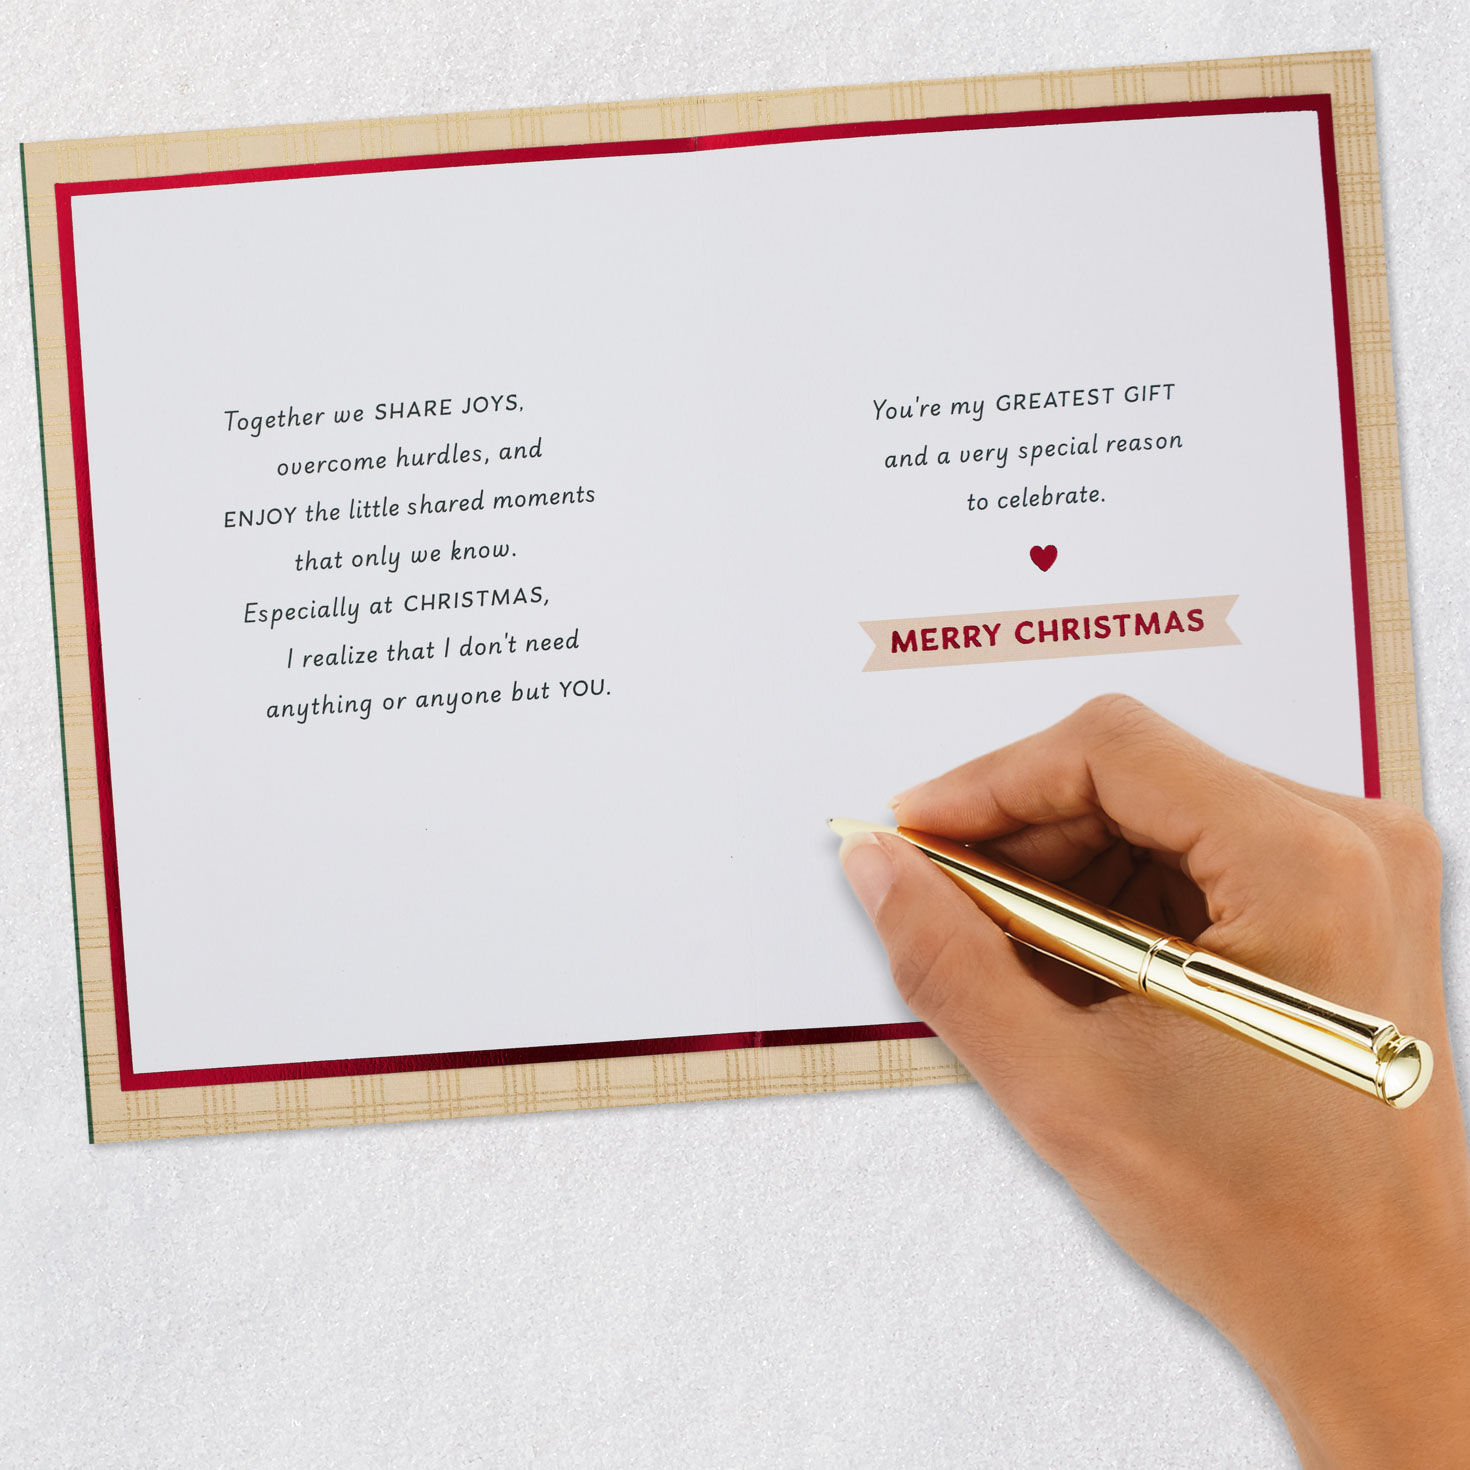 Together we SHARE JOYS,
overcome hurdles, and
ENJOY the little shared moments
that only we know.
Especially at CHRISTMAS,
I realize that I don't need
anything or anyone but YOU.
You're my GREATEST GIFT
and a very special reason
to celebrate.
MERRY CHRISTMAS